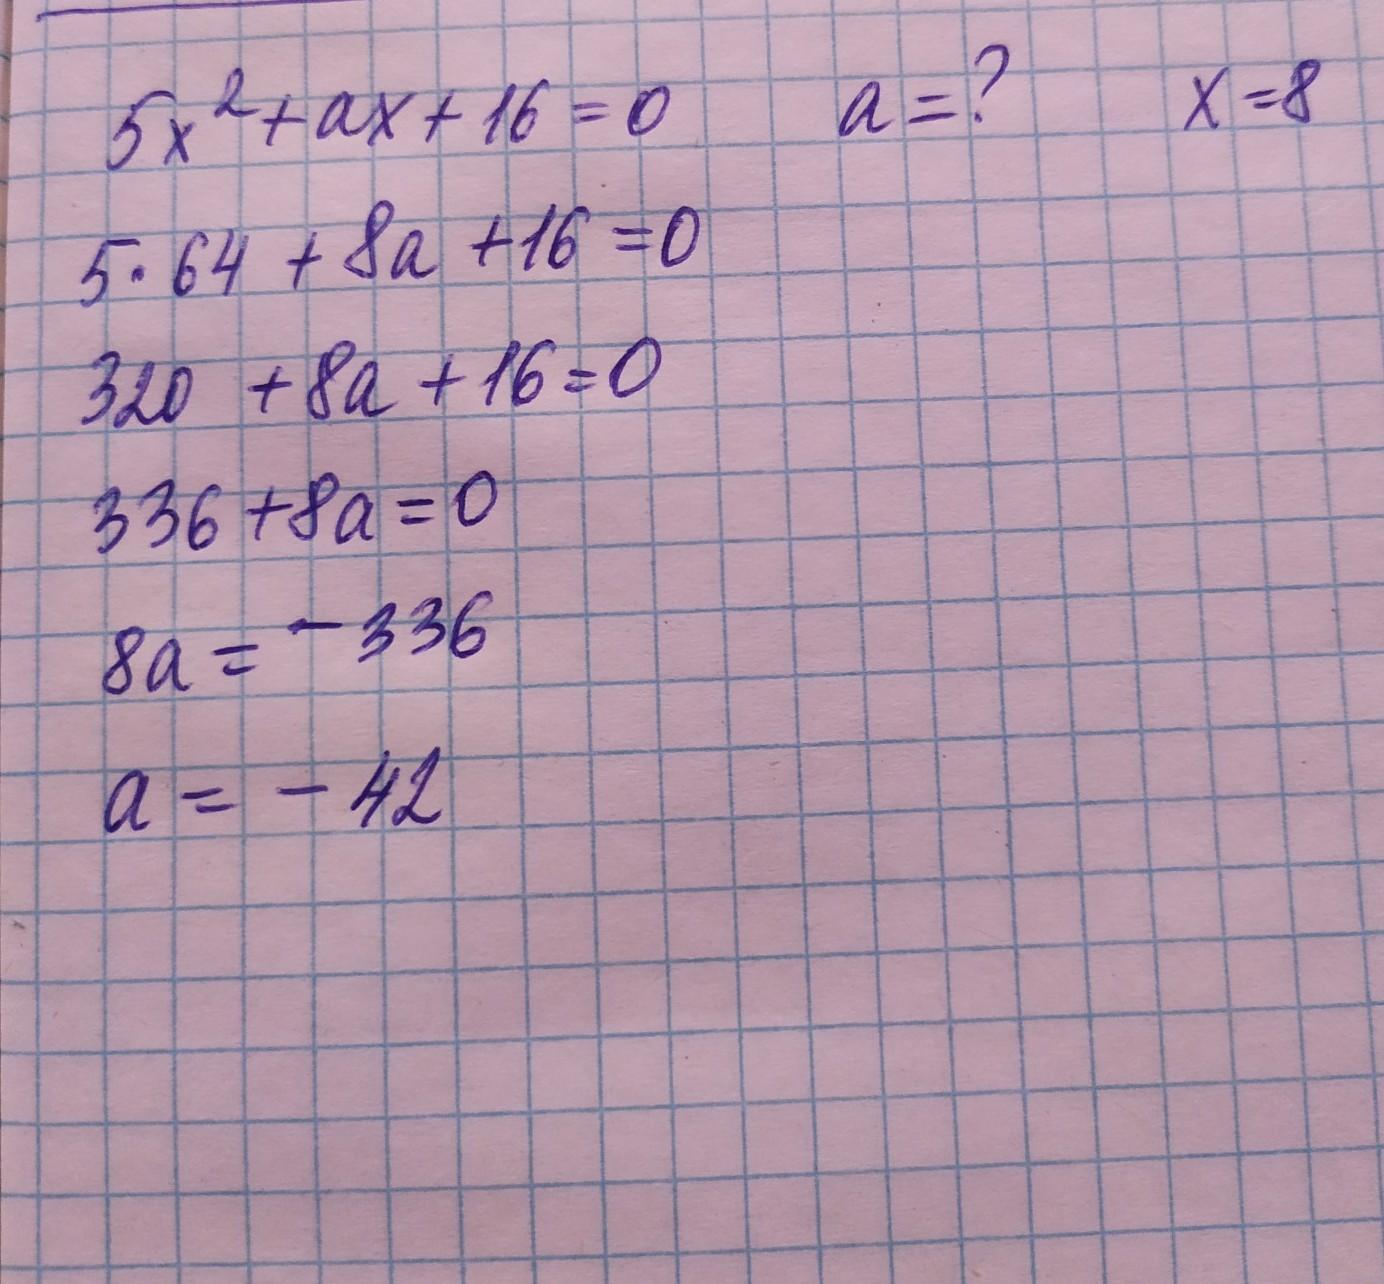 5x² + ax + 16 = 0 a = ? x = 8
5 · 64 + 8a + 16 = 0
320 + 8a + 16 = 0
336 + 8a = 0
8a = - 336
a = - 42